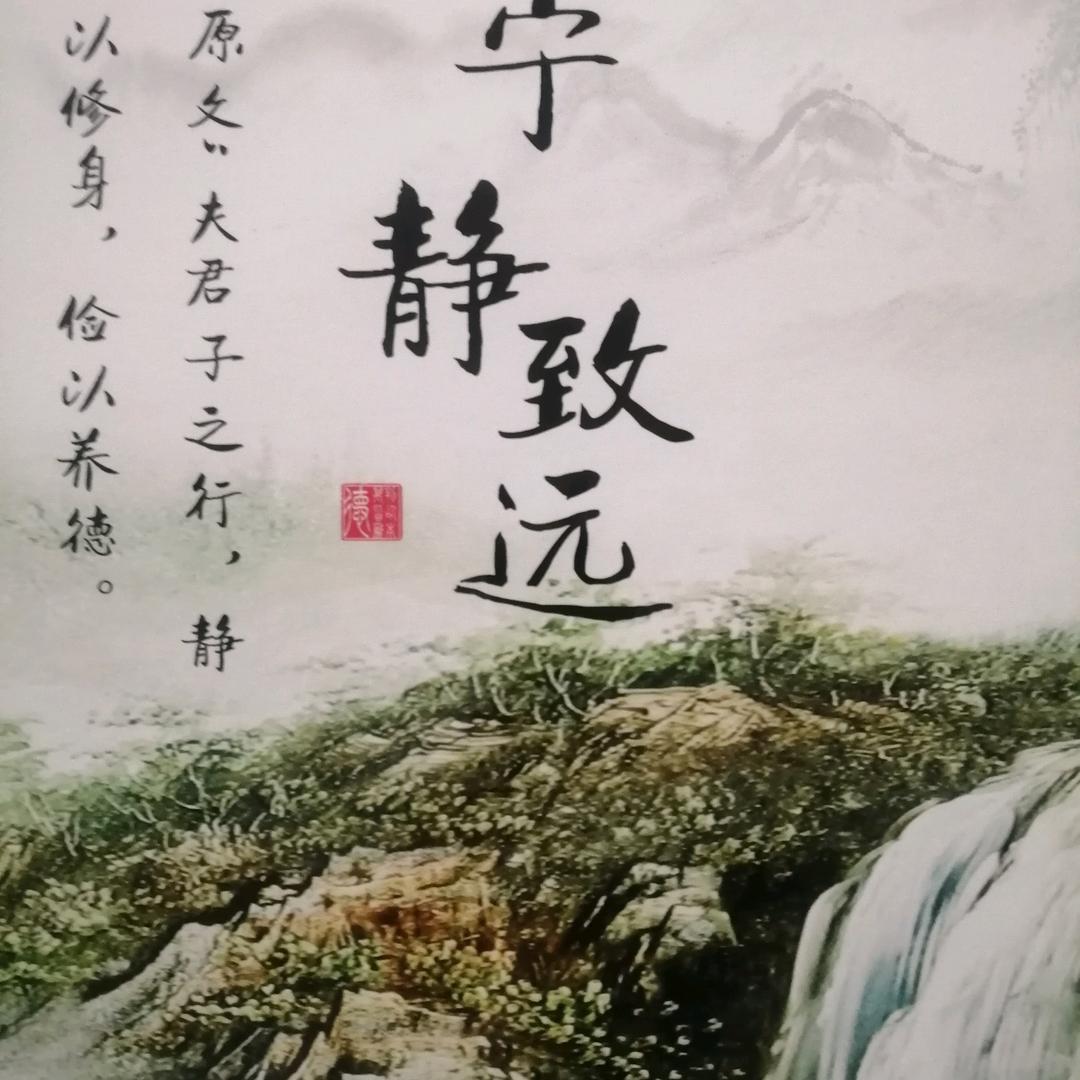 宁
静
致
远
原文:"夫君子之行,静
以修身,俭以养德。
德